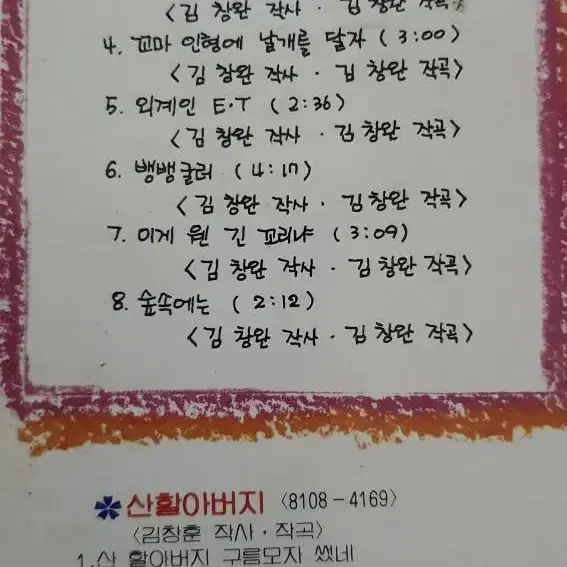 <김창완 작사 · 김창완 작곡>
4. 꼬마 인형에 날개를 달자 (3:00)
<김창완 작사 · 김창완 작곡>
5. 외계인 E·T (2:36)
<김창완 작사 · 김창완 작곡>
6. 뱅뱅굴러 (4:17)
<김창완 작사 · 김창완 작곡>
7. 이게 웬 긴 꼬리냐 (3:09)
<김창완 작사 · 김창완 작곡>
8. 숲속에는 (2:12)
<김창완 작사 · 김창완 작곡>
산할아버지 <8108-4169>
<김창훈 작사·작곡>
1. 산 할아버지 구름모자 썼네